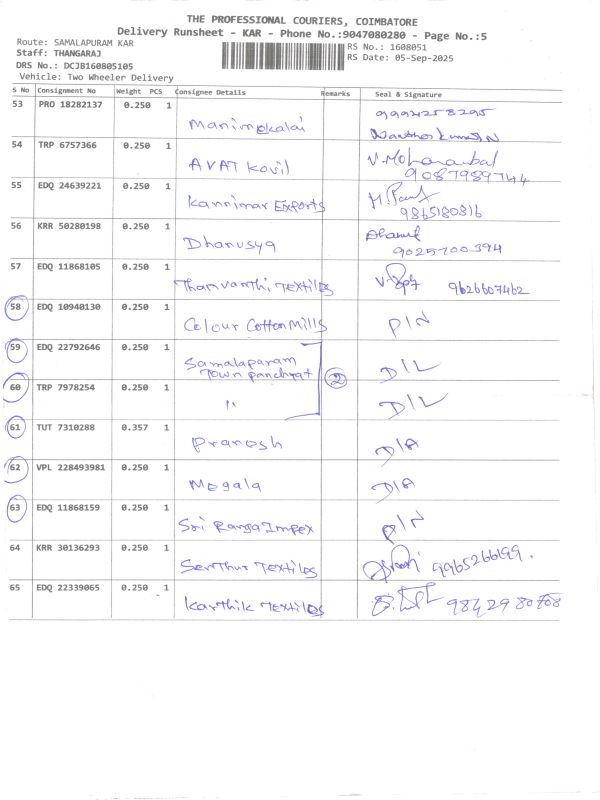 THE PROFESSIONAL COURIERS, COIMBATORE
Delivery Runsheet - KAR - Phone No.:9047080280 - Page No.:5
Route: SAMALAPURAM KAR
Staff: THANGARAJ
DRS No.: DCJB160805105
Vehicle: Two Wheeler Delivery
RS No.: 1608051
RS Date: 05-Sep-2025
S No Consignment No Weight PCS Consignee Details Remarks Seal & Signature
53 PRO 18282137 0.250 1 Manimekalai 9994258295
54 TRP 6757366 0.250 1 AVAT Kovil V. Mohanambal
9087989744
55 EDQ 24639221 0.250 1 Kannimar Exports
9865180816
56 KRR 50280198 0.250 1 Dhanusya
9025700394
57 EDQ 11868105 0.250 1 Thanvanthi Textiles 9626607462
58 EDQ 10940130 0.250 1 Colour Cotton Mills P/N
59 EDQ 22792646 0.250 1 Samalaparam
Town panchyat 2 D/L
60 TRP 7978254 0.250 1 " D/L
61 TUT 7310288 0.357 1 Pranesh D/A
62 VPL 228493981 0.250 1 Megala D/A
63 EDQ 11868159 0.250 1 Sri Ranga Impex P/N
64 KRR 30136293 0.250 1 Senthur Textiles 9965266199.
65 EDQ 22339065 0.250 1 Karthik Textiles 9842980808